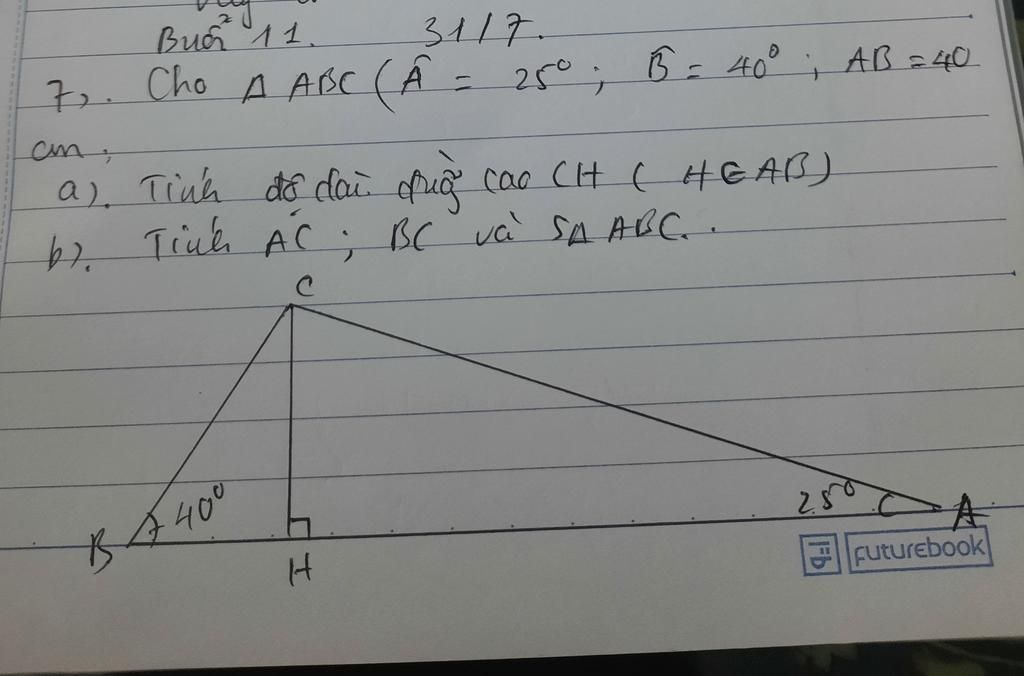 Buổi 11. 31/7.
7). Cho Δ ABC ( Â = 25° ; B̂ = 40° ; AB = 40
cm ;
a). Tính độ dài đường cao CH ( H ∈ AB )
b). Tính AC ; BC và SΔ ABC.
C
B 40° 25° A
H
futurebook